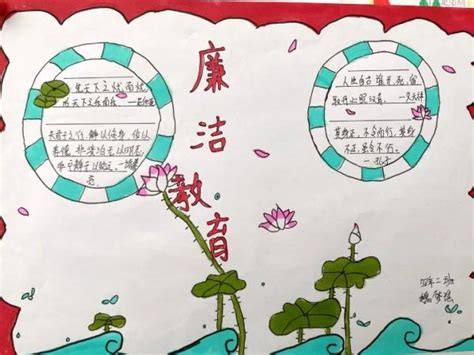 廉
洁
教
育
先天下之忧,而忧,
后天下之乐而乐 —范仲淹
夫君子之行,静以修身,俭以
养德,非淡泊无以明志,
非宁静无以致远。—诸葛
亮
人生自古谁无死,留
取丹心照汗青。—文天祥
其身正,不令而行,其身
不正,虽令不行。
—孔子
四年二班